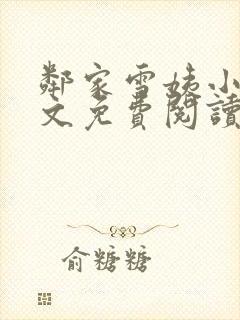 鄰家雪姨小
文免費閱讀
俞糖糖